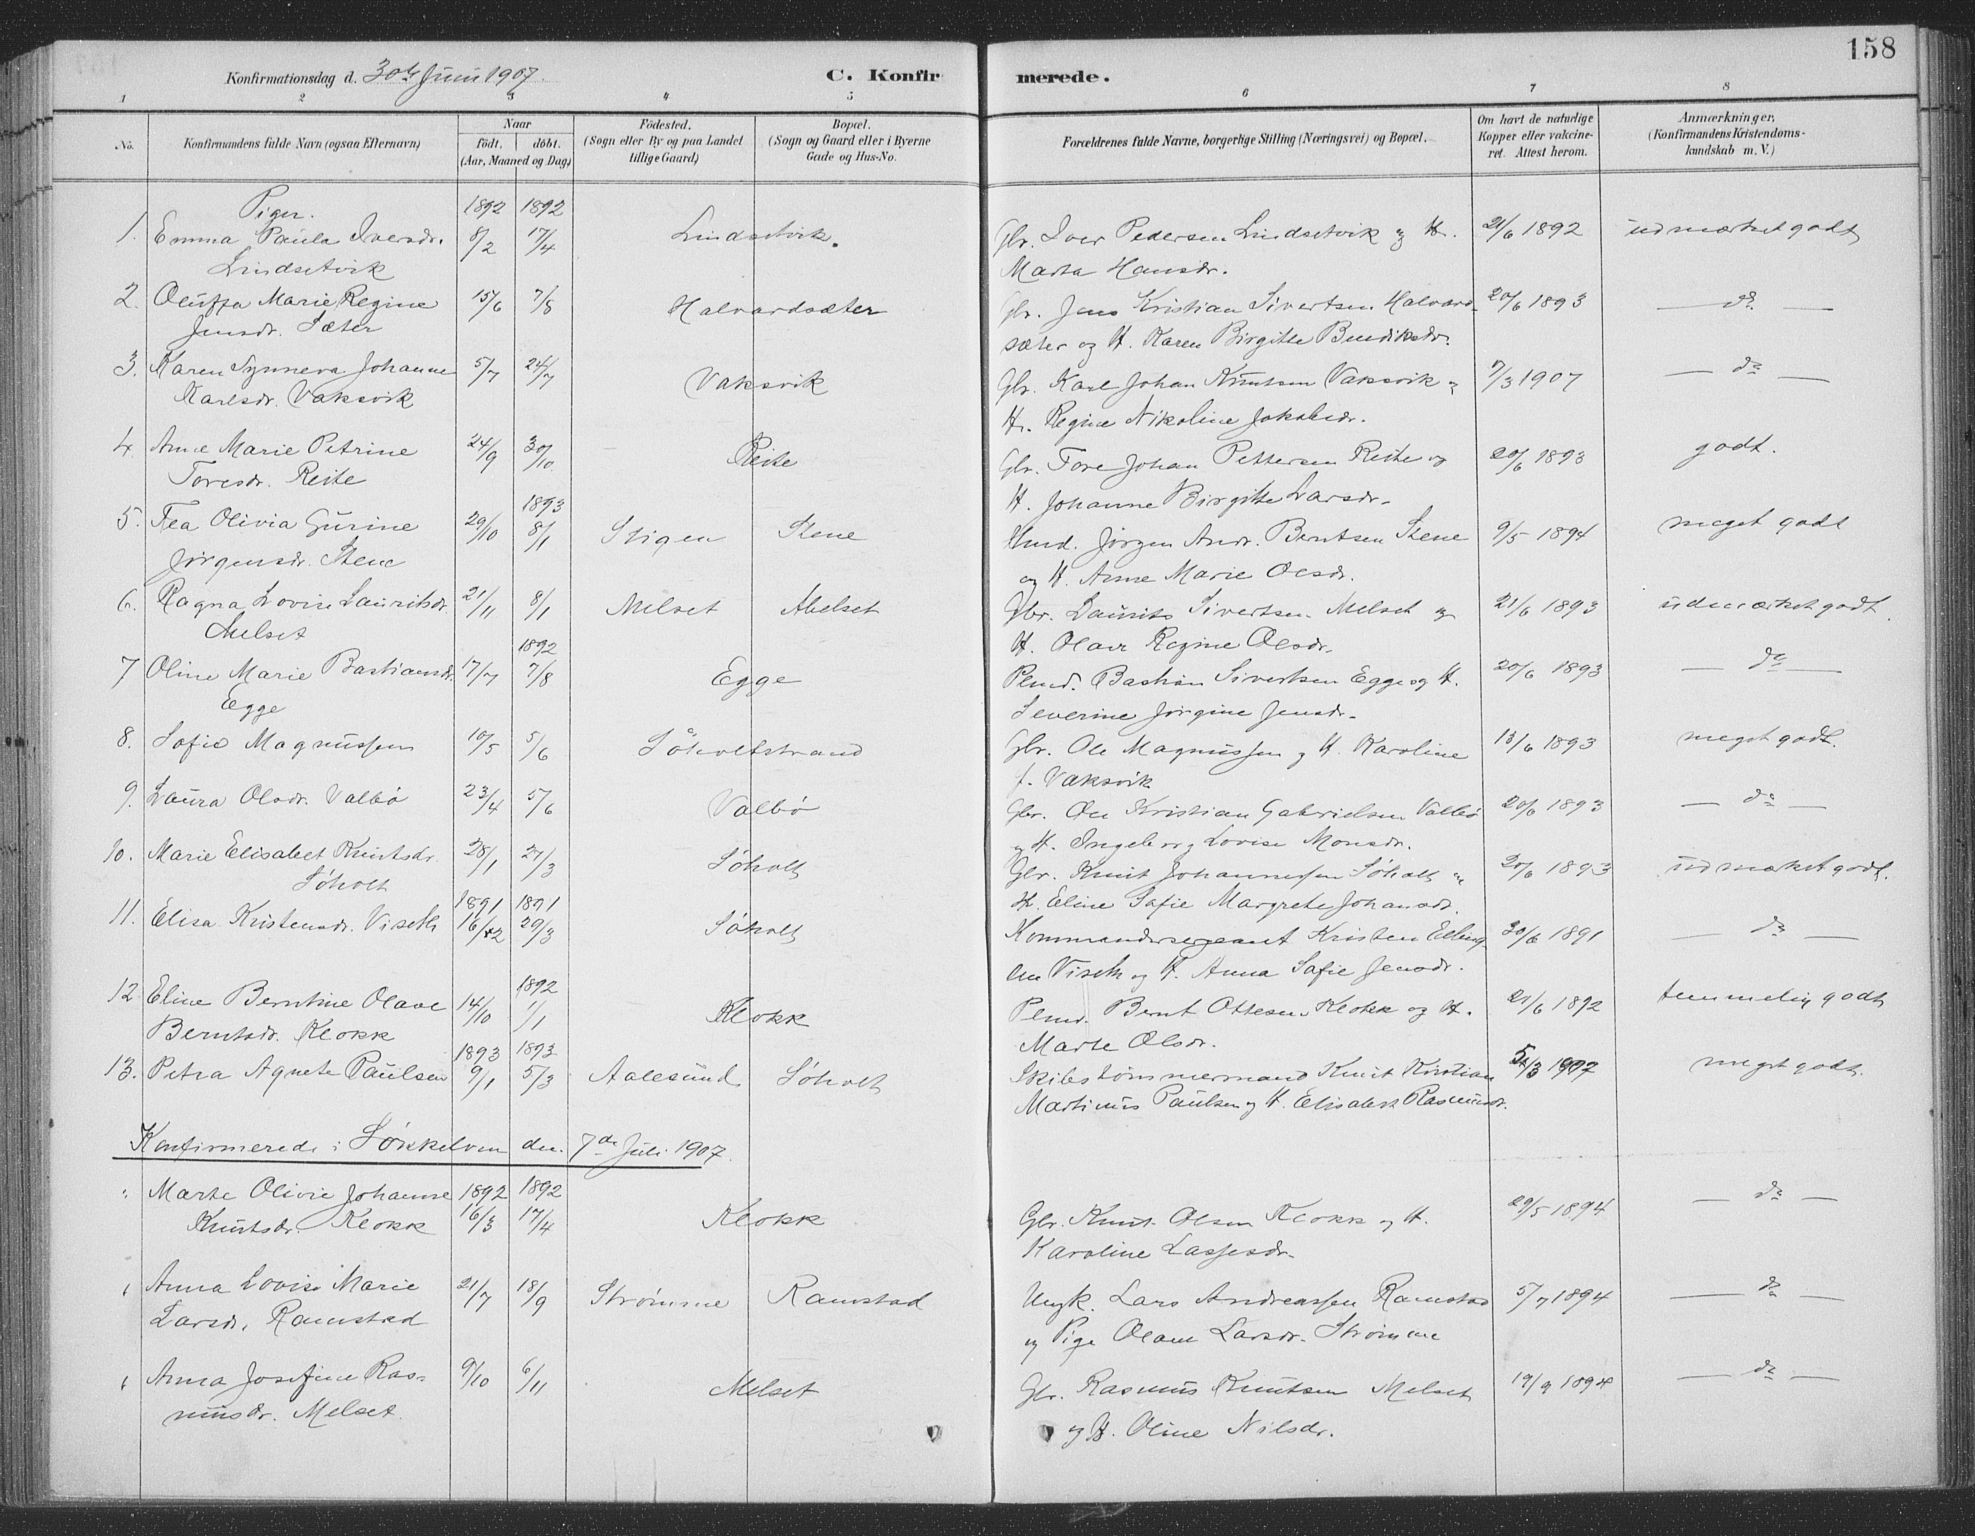 158
Konfirmationsdag d. 30te Juni 1907. C. Konfirmerede.
1 2 3 4 5 6 7 8
No. Konfirmandens fulde Navn (ogsaa Efternavn) Naar födt. döbt. (Aar, Maaned og Dag) Födested. (Sogn eller By og paa Landet tillige Gaard) Bopæl. (Sogn og Gaard eller i Byerne Gade og Hus-No. Forældrenes fulde Navne, borgerlige Stilling (Næringsvei) og Bopæl. Om havt de naturlige Kopper eller vakcineret. Attest herom. Anmærkninger. (Konfirmandens Kristendomskundskab m. V.)
Piger. 1892 1892
1. Emma Paula Iversdr. 8/2 17/4 Lindsetvik. Gbr. Iver Pedersen Lindsetvik og H. 21/6 1892 udmærket godt
Lindsetvik Marta Hansdr.
2. Oluffa Marie Regine 15/6 7/8 Halvardsæter Gbr. Jens Kristian Sivertsen Halvard- 20/6 1893 — do —
Jensdr. Sæter sæter og H. Karen Birgitte Bendiksdr.
3. Karen Synneva Johanne 5/7 24/7 Vaksvik Gbr. Karl Johan Knutsen Vaksvik og 7/3 1907 — do —
Karlsdr. Vaksvik H. Regine Nikoline Jakobsdr.
4. Anne Marie Petrine 24/9 30/10 Reite Gbr. Tore Johan Pettersen Reite og 20/6 1893 godt.
Toresdr. Reite H. Johanne Birgitte Larsdr.
1893
5. Tea Olivia Gurine 29/10 8/1 Stigen Stene Hmd. Jørgen Andr. Berntsen Stene 9/5 1894 meget godt
Jørgensdr. Stene og H. Anne Marie Olsdr.
6. Ragna Lovise Lauritsdr. 21/11 8/1 Melset Melset Gbr. Laurits Sivertsen Melset og 21/6 1893 udmærket godt
Melset H. Olave Regine Olsdr.
1892
7 Oline Marie Bastiansdr. 17/7 7/8 Egge Plmd. Bastian Sivertsen Egge og H. 20/6 1893 — do —
Egge Severine Jørgine Jensdr.
8. Sofie Magnussen 10/5 5/6 Søholtstrand Gbr. Ole Magnussen og H. Karoline 13/6 1893 meget godt.
f. Vaksvik
9. Laura Olsdr. Valbø 23/4 5/6 Valbø Gbr. Ole Kristian Gabrielsen Valbø 20/6 1893 — do —
og H. Ingeborg Lovise Monsdr.
10. Marie Elisabet Knutsdr. 28/1 21/3 Søholt Gbr. Knut Johannessen Søholt og 20/6 1893 udmærket godt.
Søholt H. Eline Sofie Margrete Johansdr.
1891 1891
11. Elisa Kristensdr. Viseth 16/2 29/3 Søholt Kommandersergeant Kristen Elling- 30/6 1891 — do —
sen Viseth og H. Anna Sofie Jensdr.
1892
12 Eline Berntine Olave 14/10 1/1 Klokk Plmd. Bernt Ottesen Klokk og H. 21/6 1892 temmelig godt
Berntsdr. Klokk Marte Olsdr.
1893 1893
13. Petra Agnete Paulsen 9/1 5/3 Aalesund Søholt Skibstømmermand Knut Kristian 5/3 1907 meget godt.
Martinus Paulsen og H. Elisabet Rasmusdr.
Konfirmerede i Sökkelven den 7de Juli 1907.
" Marte Olivie Johanne 1892 1892
Knutsdr. Klokk 16/3 17/4 Klokk Gbr. Knut Olsen Klokk og H. 29/5 1894 — do —
Karoline Lassesdr.
" Anna Lovise Marie 21/7 18/9 Strømme Ramstad Ungk. Lars Andreassen Ramstad 5/7 1894 — do —
Larsdr. Ramstad og Pige Olave Larsdr. Strømme
" Anna Josefine Ras- 9/10 6/11 Melset Gbr. Rasmus Knutsen Melset 19/9 1894 — do —
musdr. Melset. og H. Oline Nilsdr.